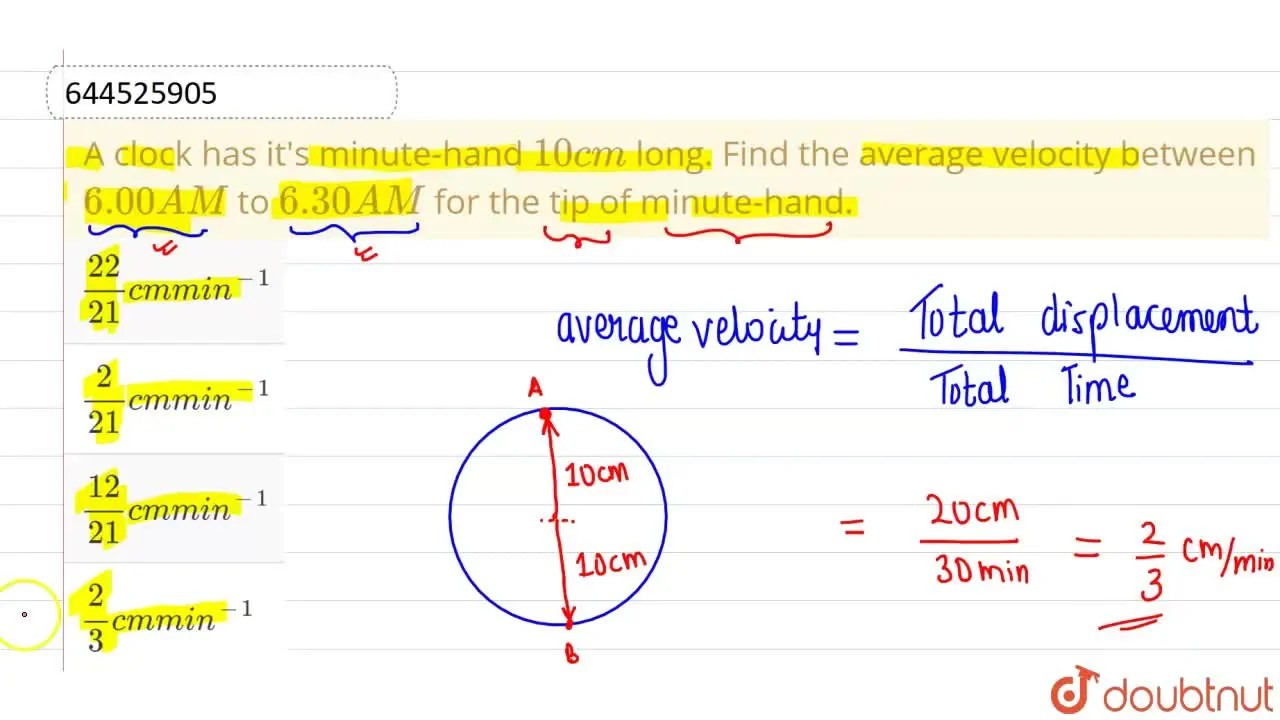 644525905
A clock has it's minute-hand 10cm long. Find the average velocity between
6.00AM to 6.30AM for the tip of minute-hand.
22/21 cmmin^-1
2/21 cmmin^-1
12/21 cmmin^-1
2/3 cmmin^-1
average velocity = Total displacement / Total Time
A
10cm
10cm
B
= 20cm / 30min = 2/3 cm/min
doubtnut